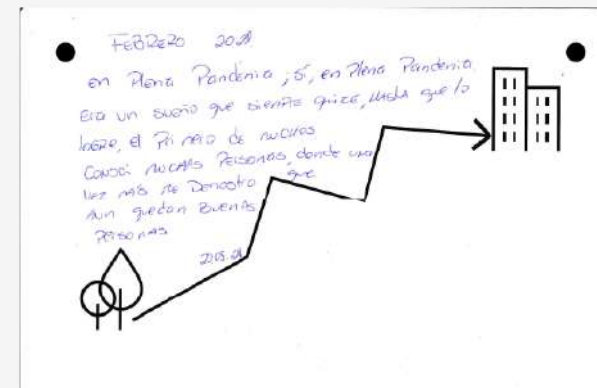 FEBRERO 2021
en Plena Pandemia, sí, en Plena Pandemia
Era un sueño que siempre quize, hasta que lo
logre, el Primero de muchos
Conoci muchas Personas, donde una
vez más me Demostro que
Aun quedan Buenas
Personas